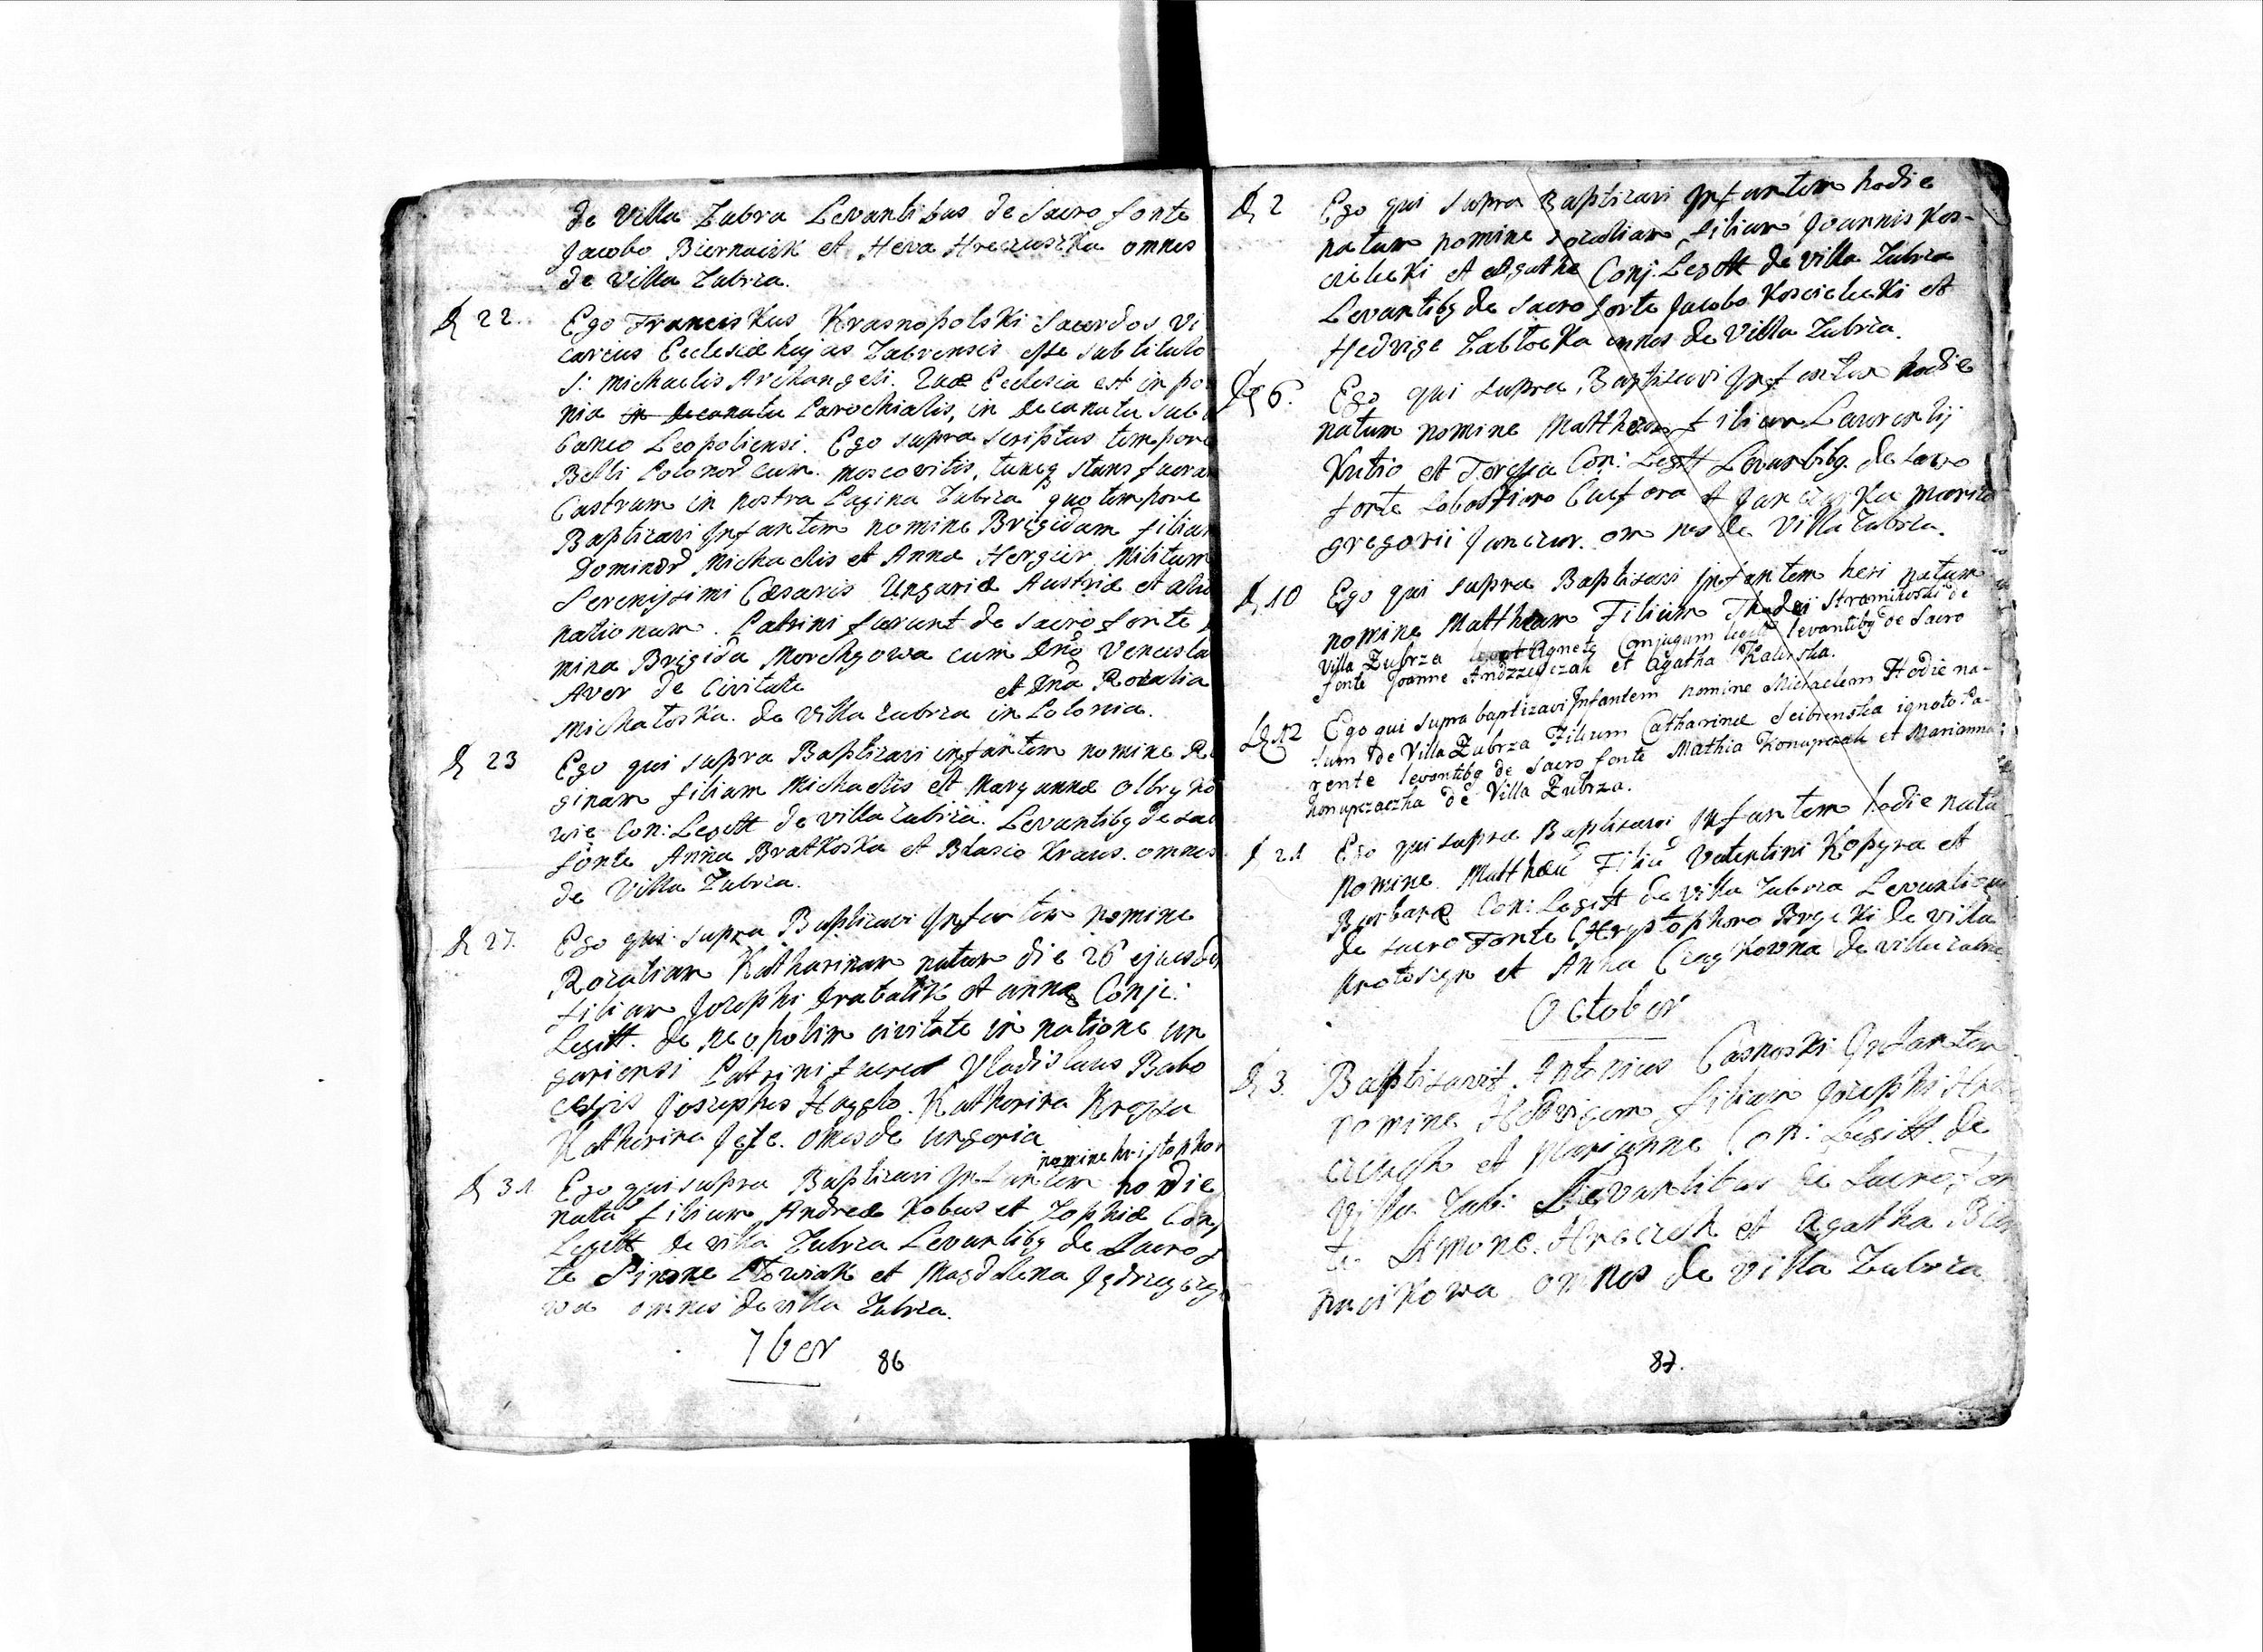 de Villa Zubra Levantibus de Sacro fonte
Jacobo Biernacik et Heva Hreczuszka omnes
de Villa Zubrza.
D 22. Ego Franciskus Krasnopolski Sacerdos Vi
carius Ecclesiæ hujas Zubrensis esse sub titulo
S: Michaelis Archangeli. Quæ Ecclesia est in po
nia in decanatu Parochialis, in Decanatu sub
baneo Leopoliensi. Ego supra scriptus tempore
Belli Polonor cum Moscovitis, tuncq stans fuera
Castrum in nostra Pagina Zubrza quo tempore
Baptizavi Infantem nomine Brigidam filiam
Dominor Michaelis et Annæ Hergier Militum
Serenissimi Cæsaris Ungariæ Austriæ et
nationum. Patrini fuerunt de Sacro fonte
mina Brigida Morchgowa cum Dno Venesla
Aver de Civitate et Dna Rozalia
Michałoska de Villa Zubrza in Polonia.
D 23 Ego qui supra Baptizavi infantem nomine Re
ginam filiam Michaelis et Maryannæ Olbryko
wie Con: Legitt de Villa Zubrza. Levantibq de sac
fonte Anna Bratkoska et Blasio Kraus. omnes
de Villa Zubrza.
D 27. Ego qui supra Baptizavi Infantem nomine
Rozaliam Katharinam natam die 26 ejusde
filiam Josephi Drabatik et annæ Conje:
Legitt. de Neopolim civitate in natione un
gariensi Patrini fuerut Vladislaus Babo
Josephus Katherina
Katherina omes de ungeria
nomine hristophor
D 31 Ego qui supra Baptizavi Infantem hodie
natu filium Andreæ Kobus et Zophiæ Conj
Legitt de villa Zubrza Levantibq de Sacro f
te Simone Ptowiak et Magdalena Jędrzeyczy
wa omnes de villa Zubrza.
7ber
86
D 2 Ego qui supra Baptizavi Infantem hodie
natam nomine rozaliam filiam Joannis Kos-
cieleki et Agathe Conj: Legitt de Villa Zubrza
Levantibq de Sacro fonte Jacobo Koscieleki et
Hedvige Zabłocka omnes de Villa Zubrza.
D 6. Ego qui supra Baptizavi Infantem hodie
natum nomine Mattheum filium Laurentij
Kutio et Teressia Con: Legitt Levantibq de sacro
fonte Sobastiano Cuefora et Janczurka
gregorii Janczur. omnes de Villa Zubrza.
D 10 Ego qui supra Baptizavi Infantem heri natum
nomine Mattheum Filium Thadei Stromikoski de
Villa Zubrza Agnetę Conjugum legitt levantibq de Sacro
fonte Joanne Andrzeyczak et Agatha Kalinska.
D 12 Ego qui supra baptizavi Infantem nomine Michaelem Hodie na-
tum de Villa Zubrza Filium Catharinæ Scibienska ignoto Pa-
rente levantibq de Sacro fonte Mathia Konupczak et Marianna
Konupczaczka de Villa Zubrza.
D 21 Ego qui supra Baptizavi Infantem hodie natu
nomine Matthæu Filiu Valentini Kopyra et
Barbaræ Con: Legitt de Villa Zubrza Levantibq
de sacro Fonte Chryptophoro Brycki de villa
Krotosyn et Anna Czaykowna de villa zubrz
October
D 3. Baptizavit Antonius Casnoski Infantem
nomine Hedvigem filiam Josephi Hre
czuch et Marianne Con: Legitt. de
Villa Zub: Levantibus de Sacro Fon
te Simone Hreczch et Agatha Bier
nacikowa omnes de villa Zubrza
87.